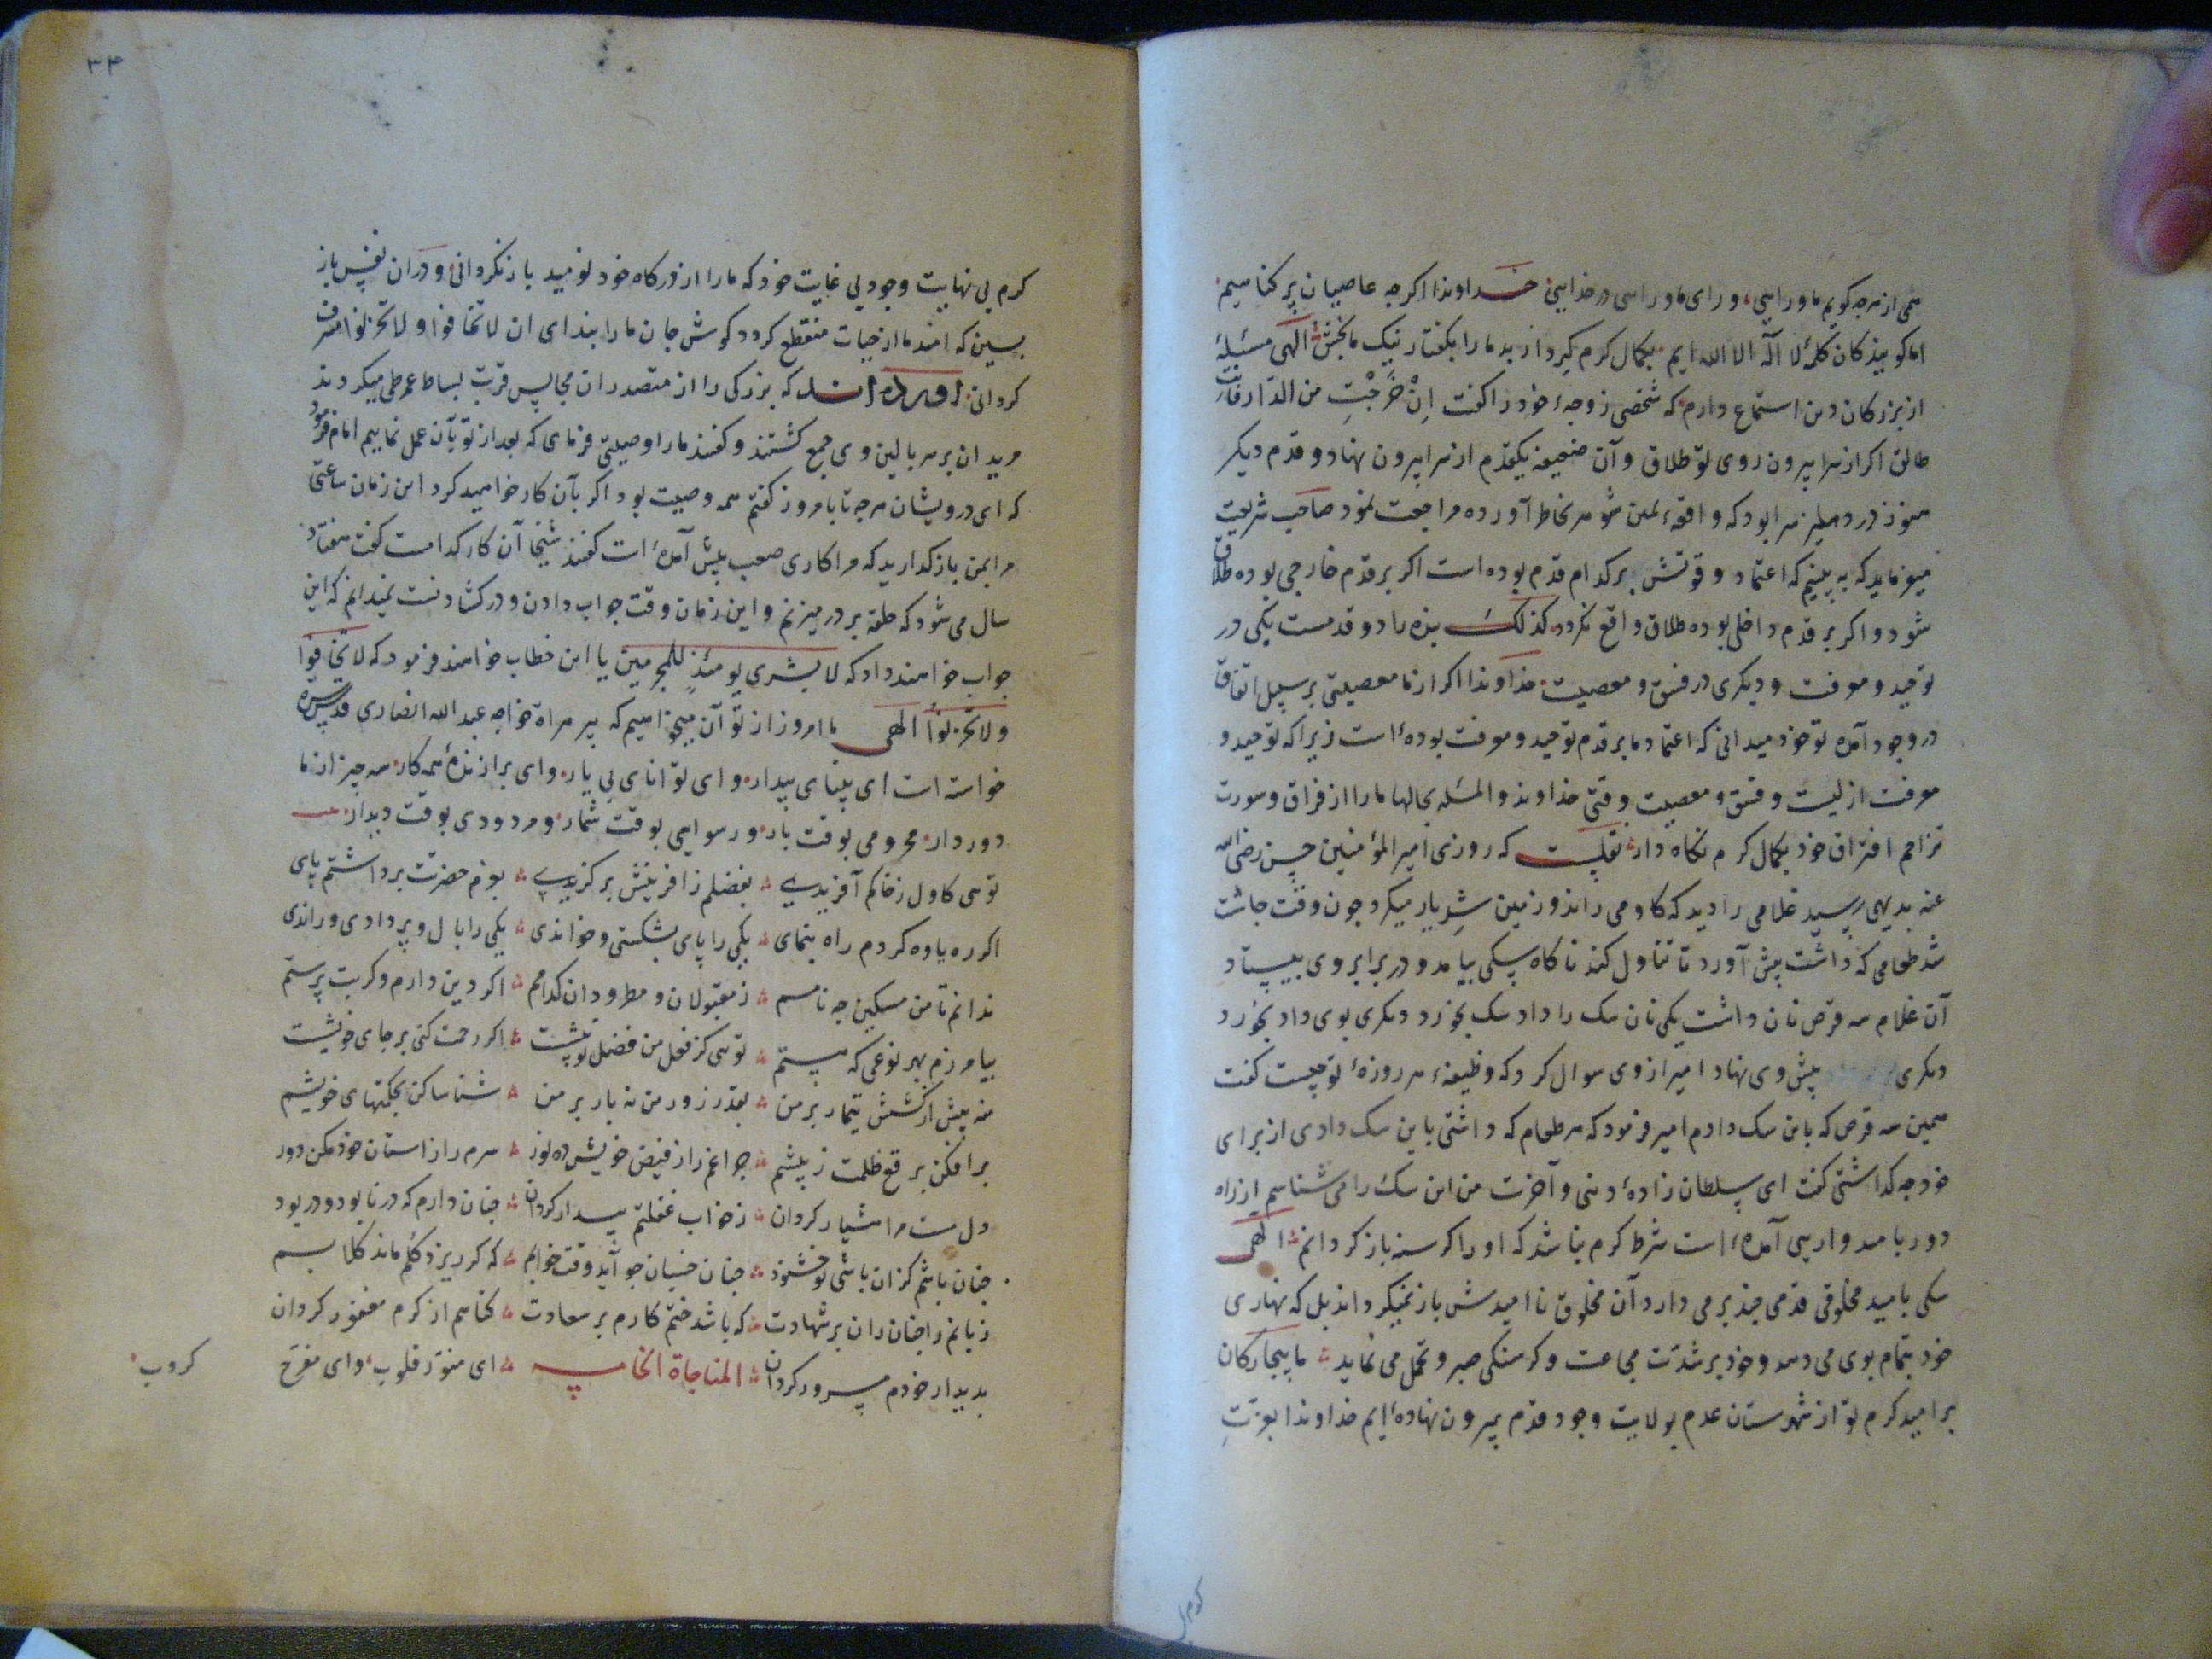 همی از هرچه گویم ماورایی، ورای ماورایی در خدایی خداوندا اگرچه عاصیان پر گناهیم
اما گویندکان کلمهٔ لا اله الا الله ایم بکمال کرم کرد از بد ما را بگفتار نیک ما بخش الهی مسئلهٔ
از بزرکان دین استماع دارم که شخصی زوجهٔ خود را کفت اِنْ خَرَجْتِ من الدّار فانت
طالق اکر از سرا بیرون روی تو طلاق و آن ضعیفه یکقدم از سرا بیرون نهاد و قدم دیکر
هنوز در دهلیز سرا بود که واقعهٔ یمین شوهر بخاطر آورده مراجعت نمود صاحب شریعت
میفرماید که به بینیم که اعتماد و قوتش بر کدام قدم بوده است اکر بر قدم خارجی بوده طلاق
شود و اکر بر قدم داخلی بوده طلاق واقع نکردد کذلک بنده را دو قدمست یکی در
توحید و معرفت و دیکری در فسق و معصیت خداوندا اکر از ما معصیتی بر سبیل اتفاق
در وجود آمده تو خود میدانی که اعتماد ما بر قدم توحید و معرفت بوده است زیرا که توحید و
معرفت ازلیست و فسق و معصیت وقتی خداوندا والمسئله بحالها ما را از فراق و سورت
تزاحم افتراق خود بکمال کرم نکاه دار نقلست که روزی امیر المؤمنین حسن رضی الله
عنه بدیهی رسید غلامی را دید که کاو می راند و زمین شد یار میکرد چون وقت چاشت
شد طعامی که داشت پیش آورد تا تناول کند ناکاه سکی بیامد و در برابر وی بیستاد
آن غلام سه قرص نان داشت یکی نان سک را داد سک بخورد دیکری بوی داد بخورد
دیکری پیش وی نهاد امیر از وی سوال کرد که وظیفهٔ هر روزهٔ تو چیست کفت
همین سه قرص که باین سک دادم امیر فرمود که هر طعام که داشتی باین سک دادی از برای
خود چه کذاشتی کفت ای سلطان زادهٔ دنیی و آخرت من این سک را می شناسم از راه
دور بامیدواریی آمده است شرط کرم نباشد که او را کرسنه باز کردانم الهی
سکی بامید مخلوقی قدمی چند بر می دارد آن مخلوق ناامیدش باز نمیکرداند بل که نهاری
خود بتمام بوی می دهد و خود بر شدّت مجاعت و کرسنکی صبر و تحمل می نماید ما بیچارکان
بر امید کرم تو از شهرستان عدم بولایت وجود قدم بیرون نهاده ایم خداوندا بعزّتِ
کرم بی
۳۴
کرم بی نهایت وجود بی غایت خود که ما را از درکاه خود نومید باز نکردانی و دران نفس باز
پسین که امید ما از حیات منقطع کردد کوش جان ما را بندای ان لا تخافوا و لا تحزنوا مشرف
کردانی آورده اند که بزرکی را از متصدران مجالس قربت بساط عمر طی میکردند
مریدان بر سر بالین وی جمع کشتند و کفتند ما را وصیتی فرمای که بعد از تو بآن عمل نماییم امام فرمود
که ای درویشان هرچه تا بامروز کفتم همه وصیت بود اکر بآن کار خواهید کرد این زمان ساعتی
مرا بمن باز کدارید که مرا کاری صعب پیش آمده است کفتند شیخا آن کار کدامست کفت هفتاد
سال می شود که حلقه بر در میزنم و این زمان وقت جواب دادن و در کشادنست نمیدانم که این
جواب خواهند داد که لا بشری یومئذٍ للمجرمین یا این خطاب خواهند فرمود که لا تخافوا
ولا تحزنوا الهی ما امروز از تو آن میخواهیم که پیر هراة خواجه عبد الله انصاری قدس سره
خواسته است ای بینای بیدار و ای توانای بی یار و ای برازندهٔ همه کار سه چیز از ما
دور دار محرومی بوقت بار و رسوایی بوقت شمار و مردودی بوقت دیدار
توسی کاول ز خاکم آفریدی بفضلم ز آفرینش برکزیدی بعزم حضرتت برداشتم پای
اکر ره یاوه کردم راه بنمای یکی را پای بشکستی و خواندی یکی را بال و پر دادی و راندی
ندانم تا من مسکین چه نامم ز مقبولان و مطرودان کدامم اکر دین دارم و کر بت پرستم
بیامرزم بهر نوعی که هستم توسی کز فعل من فضل تو بیشست اکر رحمت کنی بر جای خویشست
منه بیش از کشش تیمار بر من بقدر زور من نه بار بر من شناسا کن بحکمتهای خویشم
برافکن برقع ظلمت ز پیشم چراغم را ز فیض خویش ده نور سرم را ز استان خود مکن دور
دل مست مرا هشیار کردان ز خواب غفلتم بیدار کردان چنان دارم که در نابود و در بود
چنان باشم کزان باشی تو خشنود چنان خسبان چو آید وقت خوابم که کر ریزد کلم ماند کلابم
زبانم را چنان ران بر شهادت که باشد ختم کارم بر سعادت کناهم از کرم مغفور کردان
بدیدار خودم مسرور کردان المناجاة الخامسه ای منوّر قلوب، و ای مفرّح
کروب